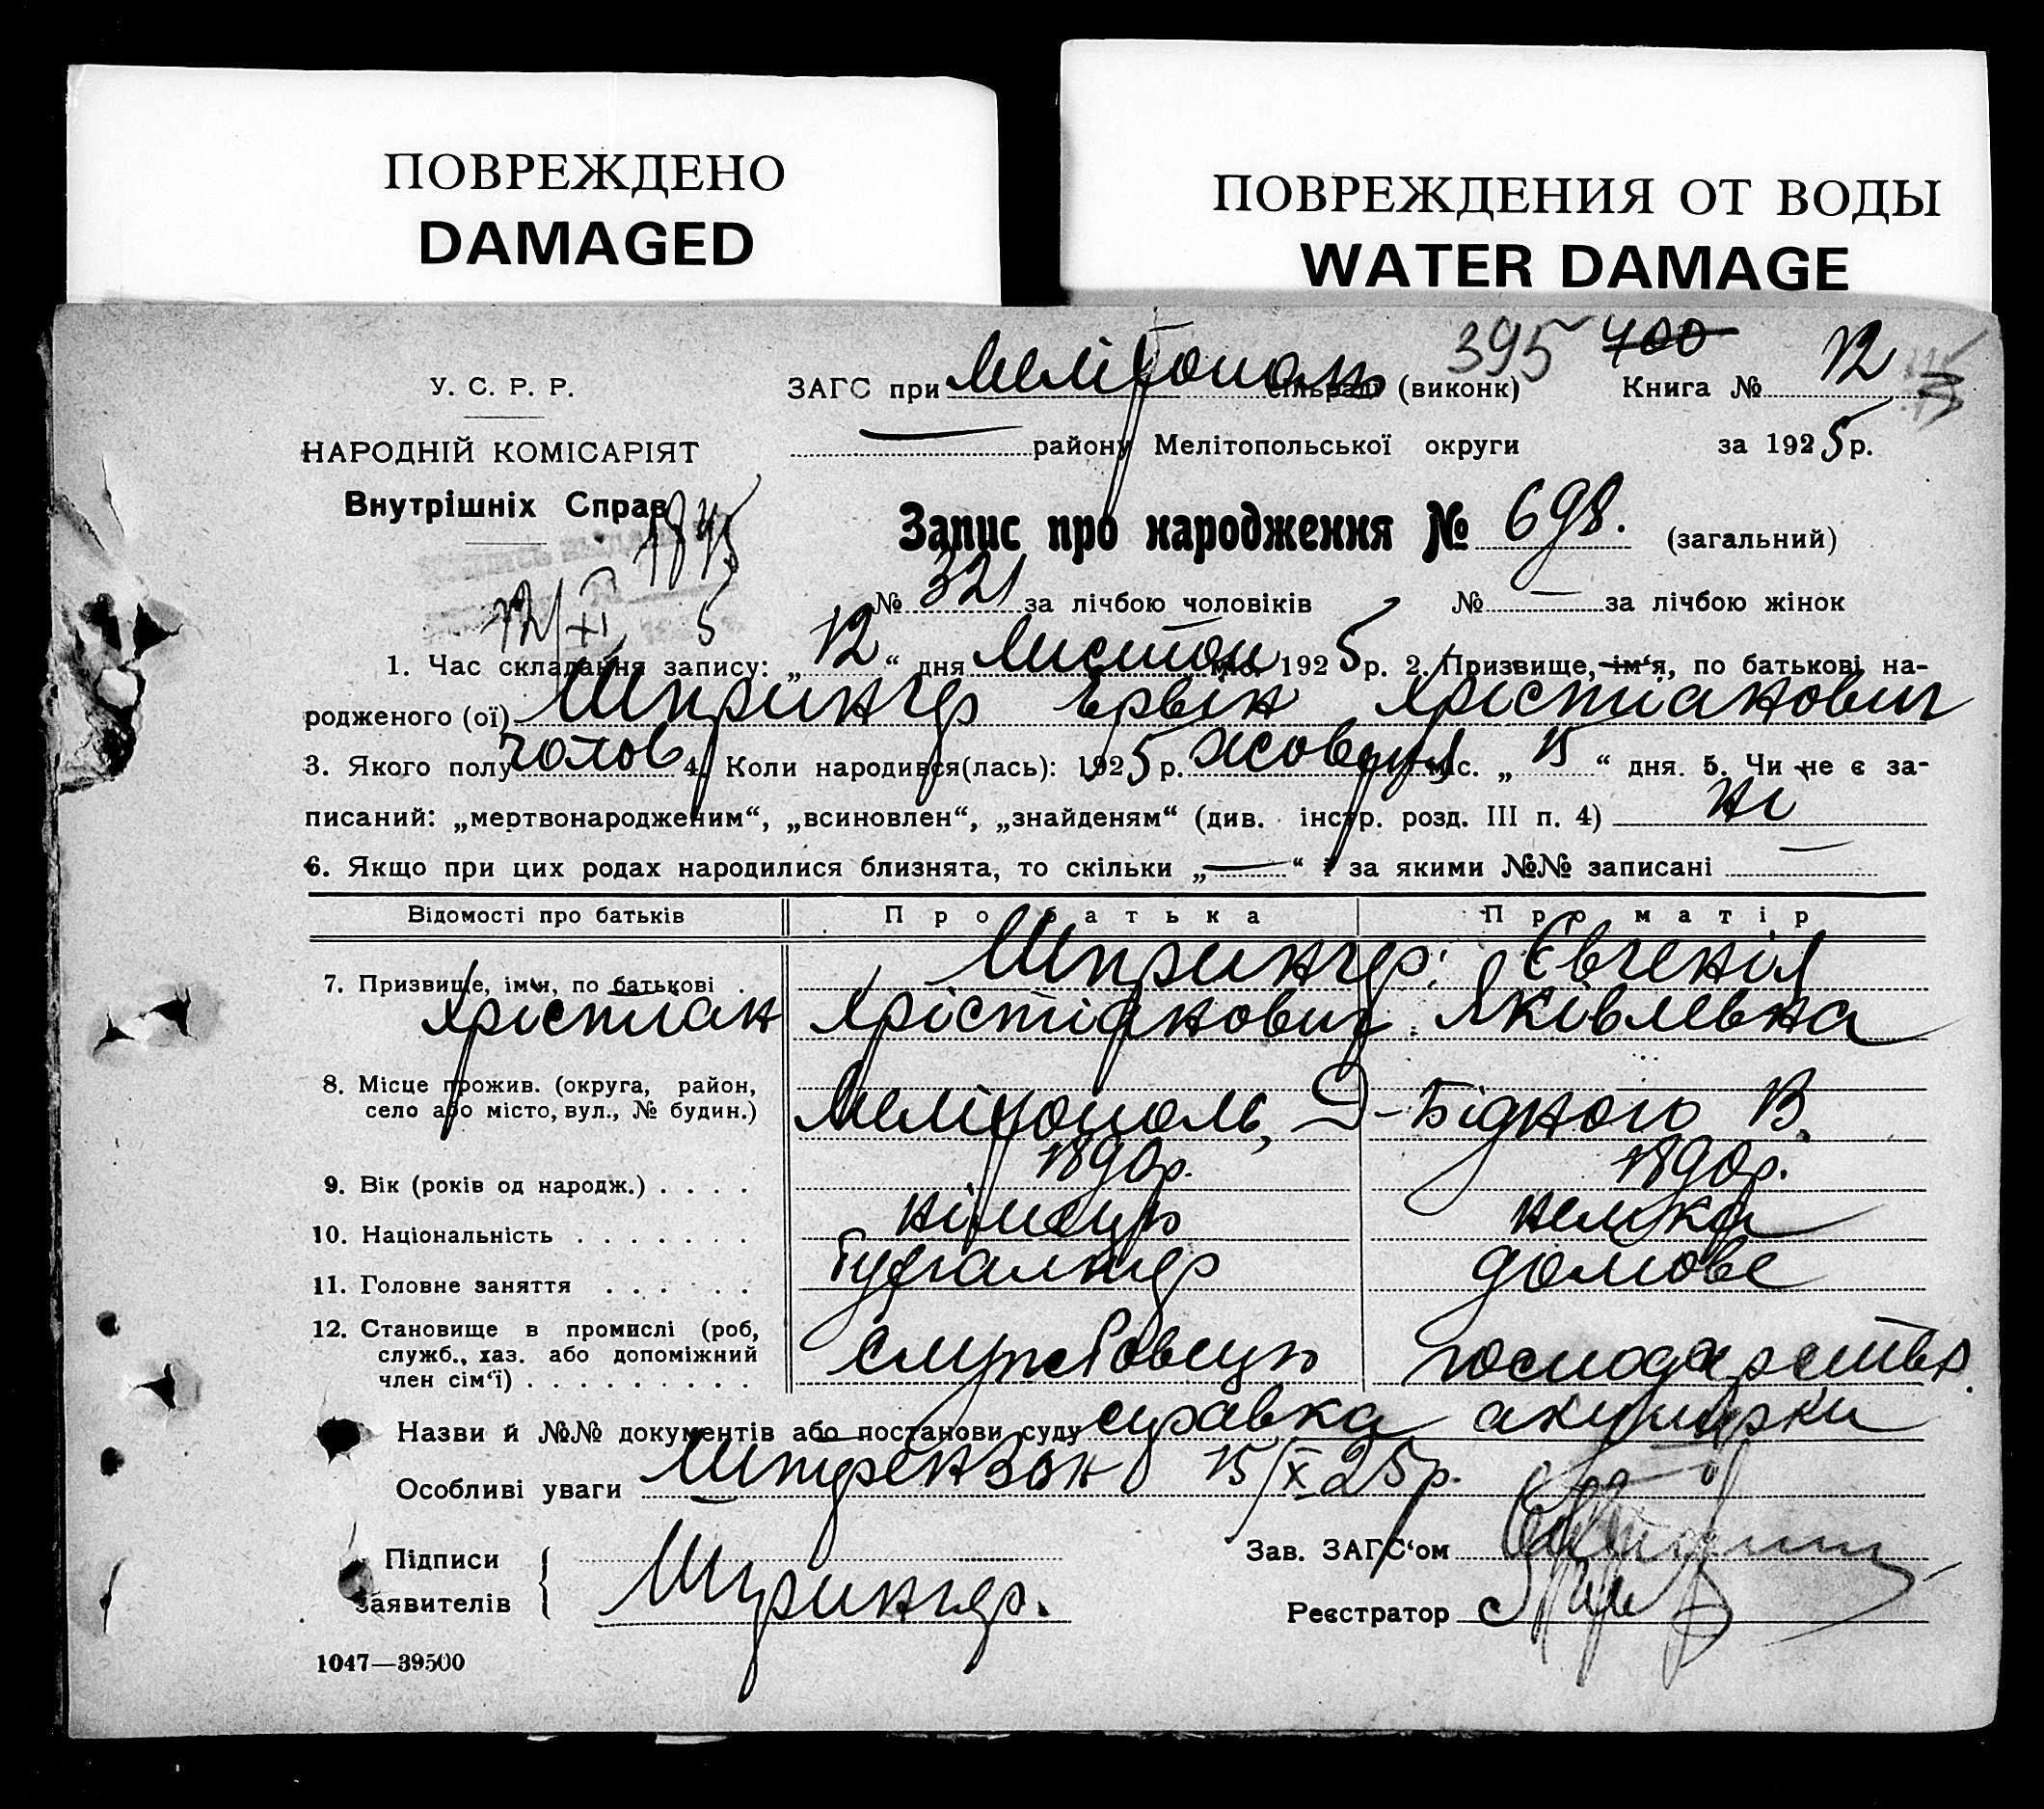 ПОВРЕЖДЕНО
DAMAGED
ПОВРЕЖДЕНИЯ ОТ ВОДЫ
WATER DAMAGE
395 700
У. С. Р. Р. ЗАГС при Мелітополь сільраді (виконк) Книга № 12
НАРОДНІЙ КОМІСАРІЯТ — району Мелітопольської округи за 1925 р.
Внутрішніх Справ
1845
Запис про народження № 698. (загальний)
12/XI 5
№ 321 за лічбою чоловіків № — за лічбою жінок
1. Час складання запису: „12“ дня Листоп міс. 1925 р. 2. Призвище, ім‘я, по батькові на-
родженого (ої) Шпрингер Ервін Хрістіанович
3. Якого полу чолов 4. Коли народився(лась): 1925 р. жовтня міс. „15“ дня. 5. Чи не є за-
писаний: „мертвонародженим“, „всиновлен“, „знайденям“ (див. інстр. розд. III п. 4) ні
6. Якщо при цих родах народилися близнята, то скільки „—“ і за якими №№ записані —
Відомості про батьків Про батька Про матір
7. Призвище, імя, по батькові . Шпрингер: Євгенія
Хрістіан Хрістіанович Яківлевна
8. Місце прожив. (округа, район,
село або місто, вул., № будин.) Мелітополь, Д-Бідного 13.
9. Вік (років од народж.) . . . . 1890 р. 1890 р.
10. Національність . . . . . . . німець немка
11. Головне заняття . . . . . бухгалтер домове
12. Становище в промислі (роб,
служб., хаз. або допоміжний
член сім‘ї) . . . . . . . . . службовець господарство
Назви й №№ документів або постанови суду справка акушерки
Особливі уваги Штрензон 15/X 25 р.
Підписи
Заявителів Шпрингер.
Зав. ЗАГС‘ом
Реєстратор
1047—39500